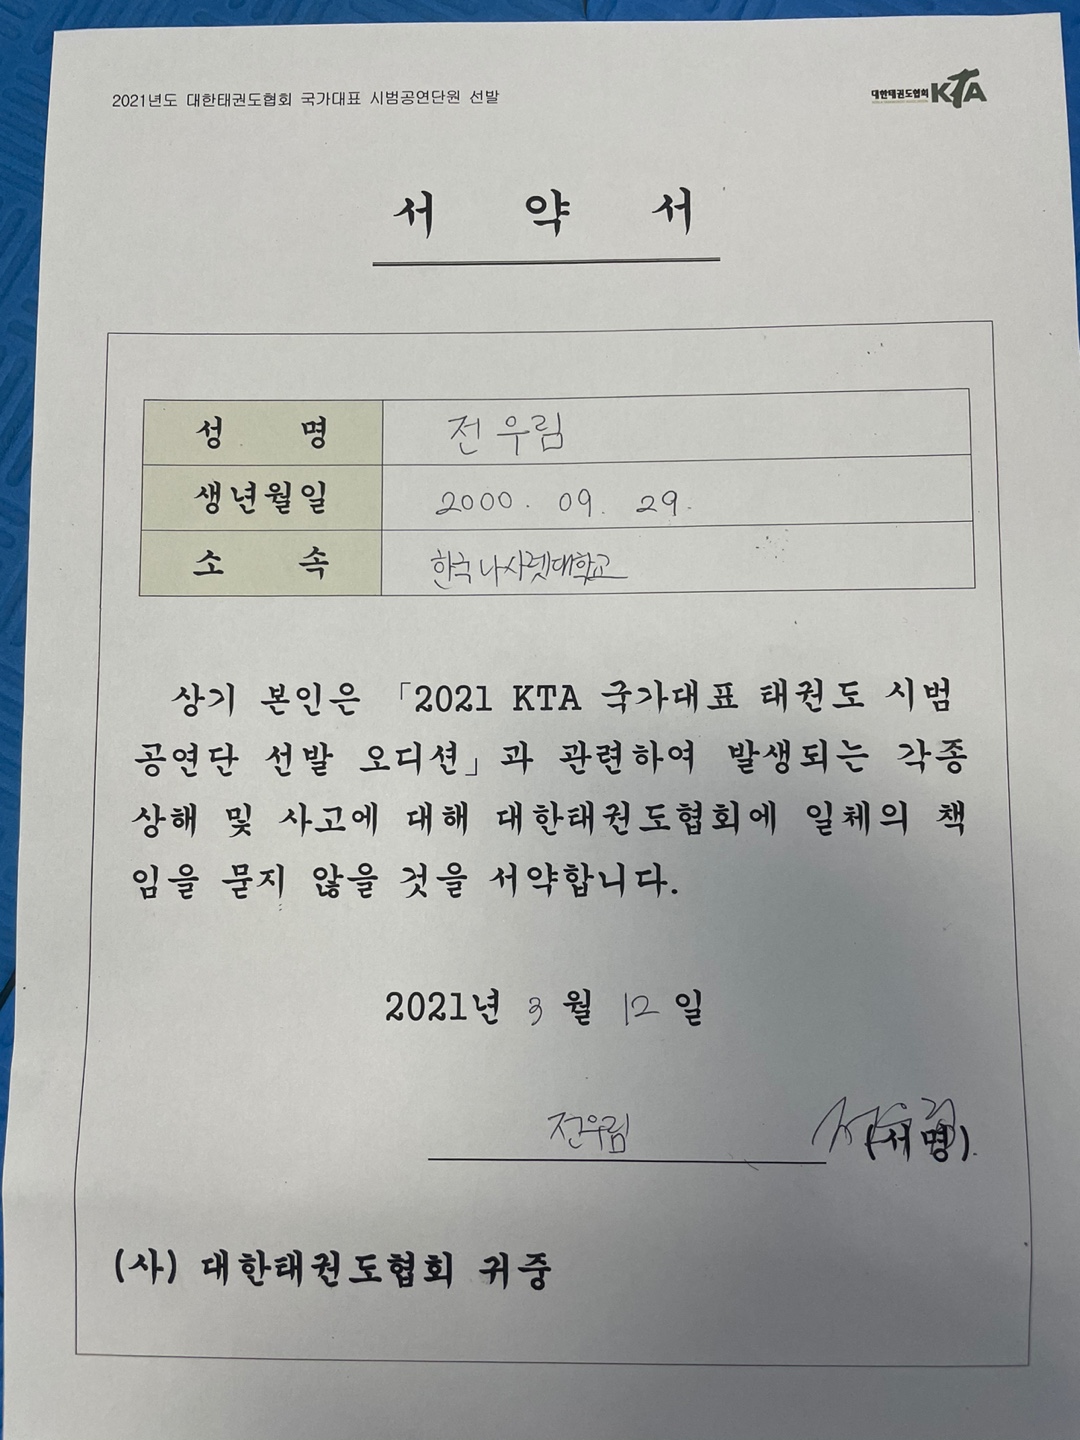 2021년도 대한태권도협회 국가대표 시범공연단원 선발
대한태권도협회 KTA
서 약 서
성 명 전우림
생년월일 2000. 09. 29.
소 속 한국나사렛대학교
상기 본인은 「2021 KTA 국가대표 태권도 시범
공연단 선발 오디션」과 관련하여 발생되는 각종
상해 및 사고에 대해 대한태권도협회에 일체의 책
임을 묻지 않을 것을 서약합니다.
2021년 3월 12일
전우림 (서명).
(사) 대한태권도협회 귀중